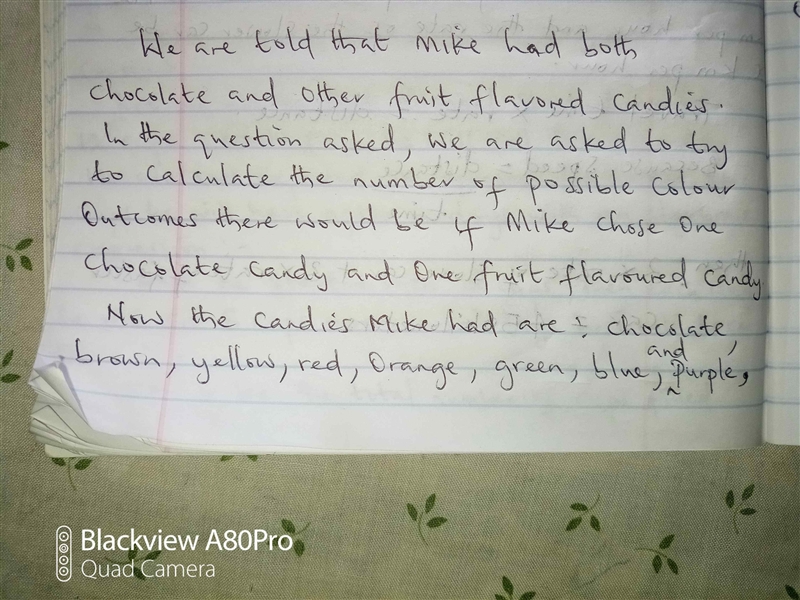 We are told that Mike had both
chocolate and other fruit flavored candies.
In the question asked, we are asked to try
to calculate the number of possible colour
outcomes there would be if Mike chose one
chocolate candy and one fruit flavoured candy
Now the candies Mike had are: chocolate,
brown, yellow, red, orange, green, blue, and purple,
Blackview A80Pro
Quad Camera